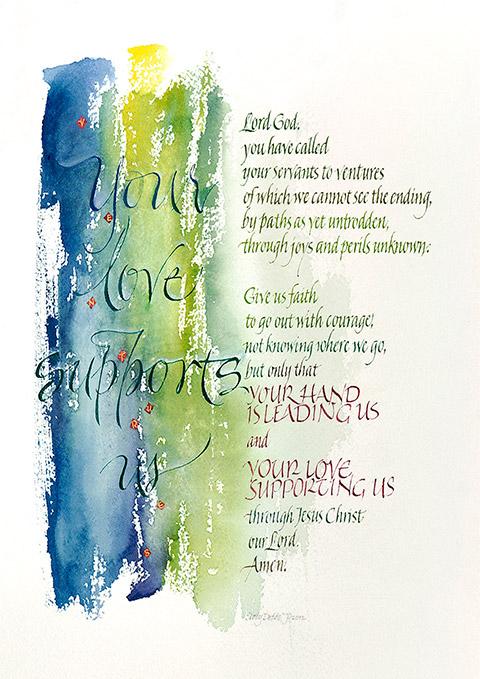 your
love
supports
us
Lord God,
you have called
your servants to ventures
of which we cannot see the ending,
by paths as yet untrodden,
through joys and perils unknown:
Give us faith
to go out with courage,
not knowing where we go,
but only that
YOUR HAND
IS LEADING US
and
YOUR LOVE
SUPPORTING US
through Jesus Christ
our Lord.
Amen.